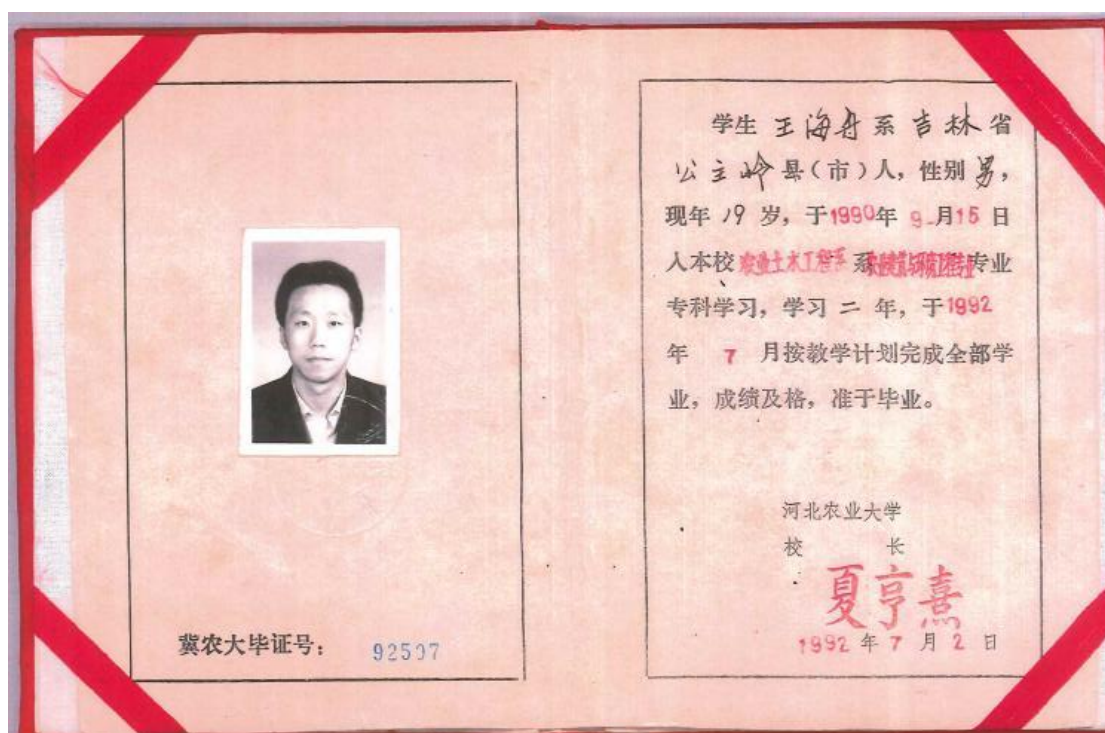 冀农大毕证号: 92507
学生 王海舟 系 吉林 省
公主岭 县(市)人, 性别 男,
现年 19 岁, 于1990年 9 月15 日
入本校 农业土木工程系 系 农业建筑与环境工程专业 专业
专科学习, 学习 二 年, 于1992
年 7 月按教学计划完成全部学
业, 成绩及格, 准于毕业。
河北农业大学
校 长
夏亨熹
1992 年 7 月 2 日